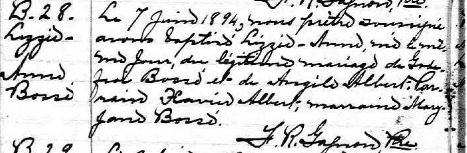 B. 28.
Lizzie-
Anne
Bossé
Le 7 Juin 1894, nous prêtre soussigné
avons baptisé Lizzie-Anne, née le mê
me jour, du légitime mariage de Gode
froi Bossé et de Angèle Albert. Par
rain Xavier Albert; marraine Mary
Jane Bossé.
F. R. Gagnon Ptre
B. 29